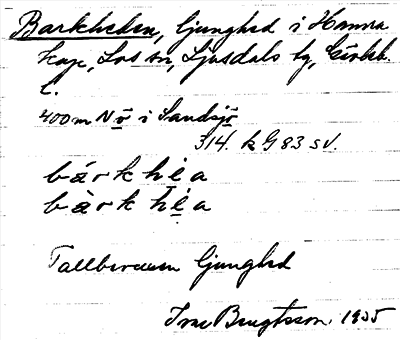 Barkheden, ljunghed i Hamra
kap., Los sn, Ljusdals tg, Gävleb.
l.
400 m N ö i Sandsjö
314. k G 83 sv.
bárkhéa
bàrkhéa
Tallbevuxen ljunghed
Ivar Bengtsson. 1935